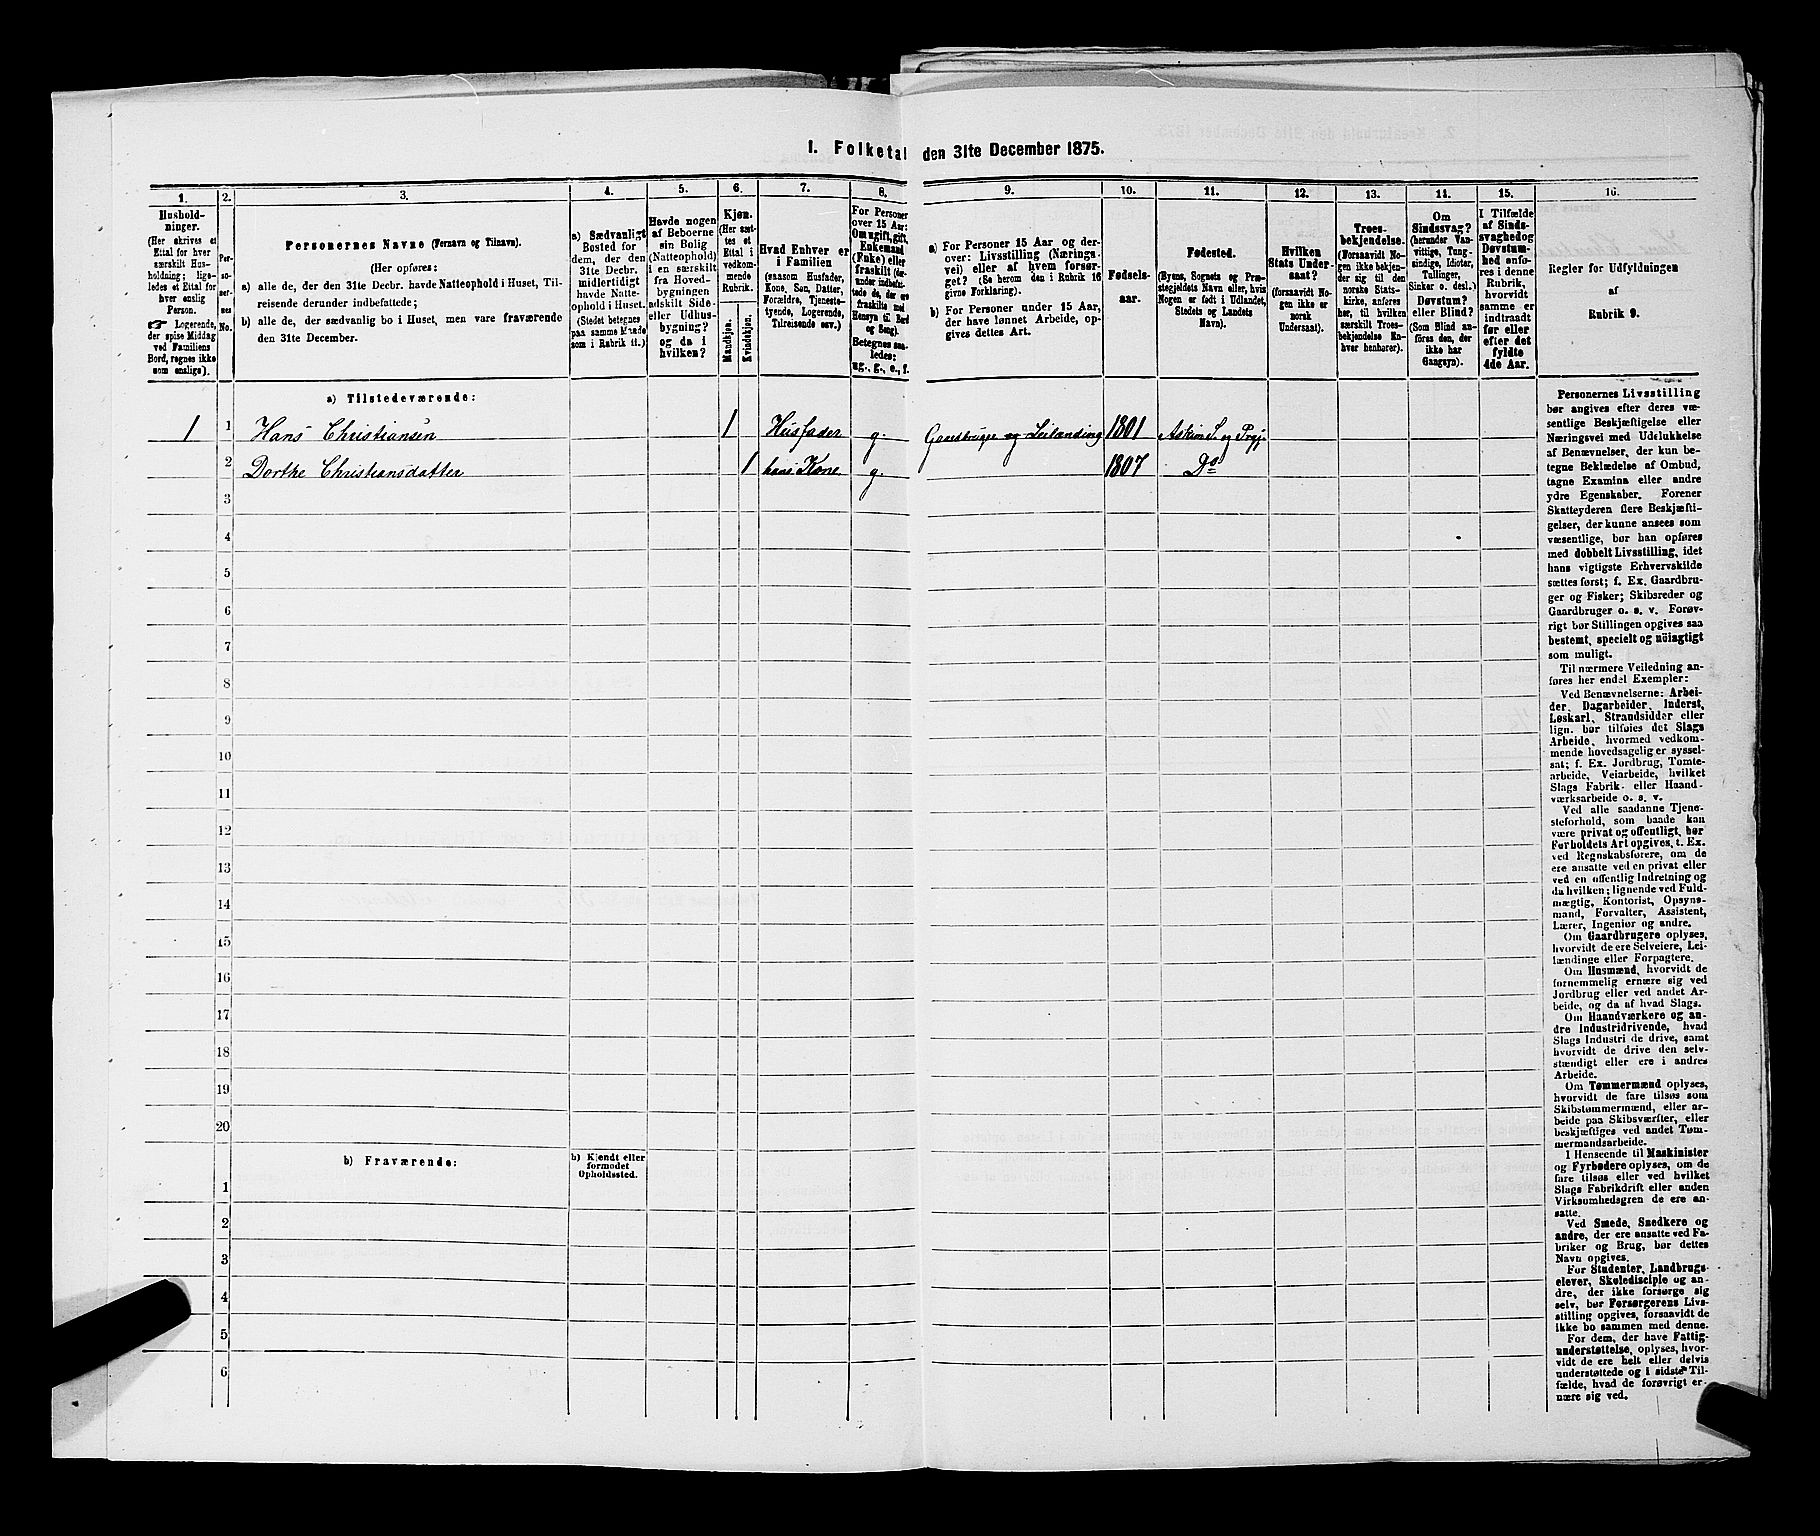 1. Folketal den 31te December 1875.
1. 2. 3. 4. 5. 6. 7. 8. 9. 10. 11. 12. 13. 14. 15. 16.
Husholdninger.
(Her skrives et
Ettal for hver
særskilt Husholdning;
ligeledes
et Ettal for
hver enslig
Person.
Logerende,
der spise Middag
ved Familiens
Bord, regnes ikke
som enslige).
Personernes No.
Personernes Navne (Fornavn og Tilnavn).
(Her opføres:
a) alle de, der den 31te Decbr. havde Natteophold i Huset, Tilreisende
derunder indbefattede;
b) alle de, der sædvanlig bo i Huset, men vare fraværende
den 31te December.
a) Sædvanligt
Bosted for
dem, der den
31te Decbr.
midlertidigt
havde Natteophold
i Huset.
(Stedet betegnes
paa samme Maade
som i Rubrik 11.)
Havde nogen
af Beboerne
sin Bolig
(Natteophold)
i en særskilt
fra Hovedbygningen
adskilt Side-
eller Udhusbygning?
og da i
hvilken?
Kjøn.
(Her sættes
et
Ettal i
vedkommende
Rubrik.
Mandkjøn.
Kvindekjøn.
Hvad Enhver er
i Familien
(saasom Husfader,
Kone, Søn, Datter,
Forældre, Tjenestetyende,
Logerende,
Tilreisende osv.)
For Personer
over 15 Aar:
Om ugift, gift,
Enkemand
(Enke) eller
fraskilt
Betegnes saaledes:
ug., g., e., f.
a) For Personer 15 Aar og derover:
Livsstilling (Næringsvei)
eller af hvem forsørget?
(Se herom den i Rubrik 16
givne Forklaring).
b) For Personer under 15 Aar,
der have lønnet Arbeide, opgives
dettes Art.
Fødselsaar.
Fødested.
(Byens, Sognets og Præstegjeldets
Navn eller, hvis
Nogen er født i Udlandet,
Stedets og Landets
Navn).
Hvilken
Stats Undersaat?
(forsaavidt Nogen
ikke er
norsk
Undersaat).
Troesbekjendelse.
(Forsaavidt Nogen
ikke bekjender
sig til den
norske Statskirke,
anføres
her, til hvilken
særskilt Troesbekjendelse
Enhver
henhører).
Om
Sindssvag?
(herunder Vanvittige,
Tungsindige,
Idioter,
Tullinger,
Sinker o. desl.)
Døvstum?
eller Blind?
(Som Blind anføres
den, der
ikke har
Gangsyn).
I Tilfælde
af Sindssvaghed
og
Døvstumhed
anføres
i denne
Rubrik,
hvorvidt
samme er
indtraadt
før eller
efter det
fyldte
4de Aar.
Regler for Udfyldningen
af
Rubrik 9.
a) Tilstedeværende:
1 1 Hans Christiansen 1 Husfader g. Gaardbruger og Leilænding 1801 Askim S. og Prgj.
2 Dorthe Christiansdatter 1 hans Kone g. 1807 Do
3
4
5
6
7
8
9
10
11
12
13
14
15
16
17
18
19
20
b) Fraværende:
b) Kjendt eller
formodet
Opholdssted.
1
2
3
4
5
6
Personernes Livsstilling
bør angives efter deres væsentlige
Beskjæftigelse eller
Næringsvei med Udelukkelse
af Benævnelser, der kun betegne
Beklædelse af Ombud,
tagne Examina eller andre
ydre Egenskaber. Forener
Skatteyderen flere Beskjæftigelser,
der kunne ansees som
væsentlige, bør han opføres
med dobbelt Livsstilling, idet
hans vigtigste Erhvervskilde
sættes først; f. Ex. Gaardbruger
og Fisker; Skibsreder og
Gaardbruger o. s. v. Forøvrigt
bør Stillingen opgives saa
bestemt, specielt og nöiagtigt
som muligt.
Til nærmere Veiledning anføres
her endel Exempler:
Ved Benævnelserne: Arbeider,
Dagarbeider, Inderst,
Løskarl, Strandsidder eller
lign. bør tilføies det Slags
Arbeide, hvormed vedkommende
hovedsagelig er sysselsat;
f. Ex. Jordbrug, Tomtearbeide,
Veiarbeide, hvilket
Slags Fabrik- eller Haandværksarbeide
o. s. v.
Ved alle saadanne Tjenesteforhold,
som baade kan
være privat og offentligt, bør
Forholdets Art opgives, t. Ex.
ved Regnskabsførere, om de
ere ansatte ved en privat eller
ved en offentlig Indretning og
da hvilken; lignende ved Fuldmægtig,
Kontorist, Opsynsmand,
Forvalter, Assistent,
Lærer, Ingeniør og andre.
Om Gaardbrugere oplyses,
hvorvidt de ere Selveiere, Leilændinge
eller Forpagtere.
Om Husmænd, hvorvidt de
fornemmelig ernære sig ved
Jordbrug eller ved andet Arbeide,
og da af hvad Slags.
Om Haandværkere og andre
Industridrivende, hvad
Slags Industri de drive, samt
hvorvidt de drive den selvstændigt
eller ere i andres
Arbeide.
Om Tømmermænd oplyses,
hvorvidt de fare tilsøs som
Skibstømmermænd, eller arbeide
paa Skibsværfter, eller
beskjæftiges ved andet Tømmermandsarbeide.
I Henseende til Maskinister
og Fyrbødere oplyses, om de
fare tilsøs eller ved hvilket
Slags Fabrikdrift eller anden
Virksomhedsgren de ere ansatte.
Ved Smede, Snedkere og
andre, der ere ansatte ved Fabriker
og Brug, bør dettes
Navn opgives.
For Studenter, Landbrugselever,
Skoledisciple og andre,
der ikke forsørge sig
selv, bør Forsørgerens Livsstilling
opgives, forsaavidt de
ikke bo sammen med denne.
For dem, der have Fattigunderstøttelse,
oplyses, hvorvidt
de ere helt eller delvis
understøttede og i sidste Tilfælde,
hvad de forøvrigt ernære
sig ved.